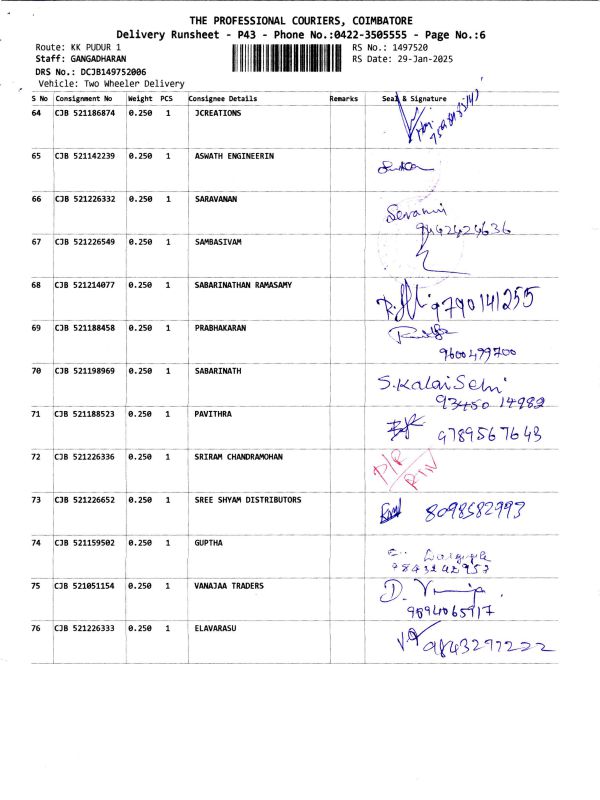 THE PROFESSIONAL COURIERS, COIMBATORE
Delivery Runsheet - P43 - Phone No.:0422-3505555 - Page No.:6
Route: KK PUDUR 1 RS No.: 1497520
Staff: GANGADHARAN RS Date: 29-Jan-2025
DRS No.: DCJB149752006
Vehicle: Two Wheeler Delivery
S No Consignment No Weight PCS Consignee Details Remarks Seal & Signature
64 CJB 521186874 0.250 1 JCREATIONS
65 CJB 521142239 0.250 1 ASWATH ENGINEERIN
66 CJB 521226332 0.250 1 SARAVANAN
9442424636
67 CJB 521226549 0.250 1 SAMBASIVAM
68 CJB 521214077 0.250 1 SABARINATHAN RAMASAMY
9790141255
69 CJB 521188458 0.250 1 PRABHAKARAN
9600499700
70 CJB 521198969 0.250 1 SABARINATH
S. KalaiSelvi
93450 14982
71 CJB 521188523 0.250 1 PAVITHRA
9789567643
72 CJB 521226336 0.250 1 SRIRAM CHANDRAMOHAN
73 CJB 521226652 0.250 1 SREE SHYAM DISTRIBUTORS
8098582993
74 CJB 521159502 0.250 1 GUPTHA
75 CJB 521051154 0.250 1 VANAJAA TRADERS
76 CJB 521226333 0.250 1 ELAVARASU
9843297222